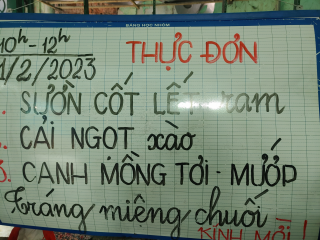 BẢNG HỌC NHÓM
10h - 12h
1/2/2023
THỰC ĐƠN
SƯỜN CỐT LẾT ram
CẢI NGỌT xào
3. CANH MỒNG TƠI - MƯỚP
Tráng miệng chuối
KÍNH MỜI!